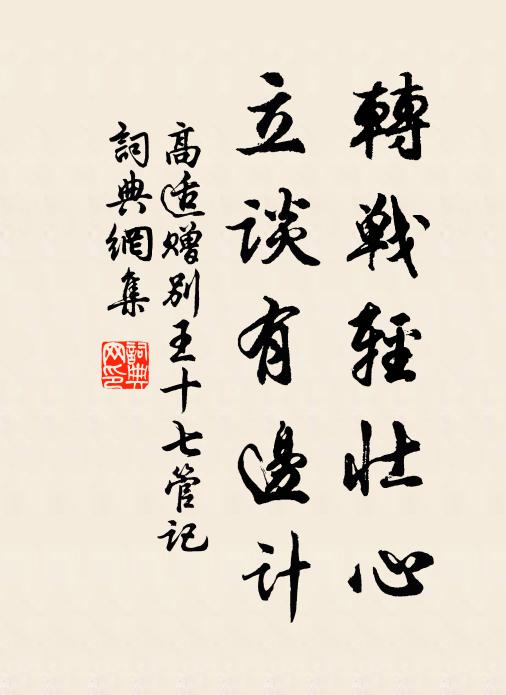 轉戰輕壯心
立談有邊計
高适贈別王十七管記
詞典網集
詞典網印